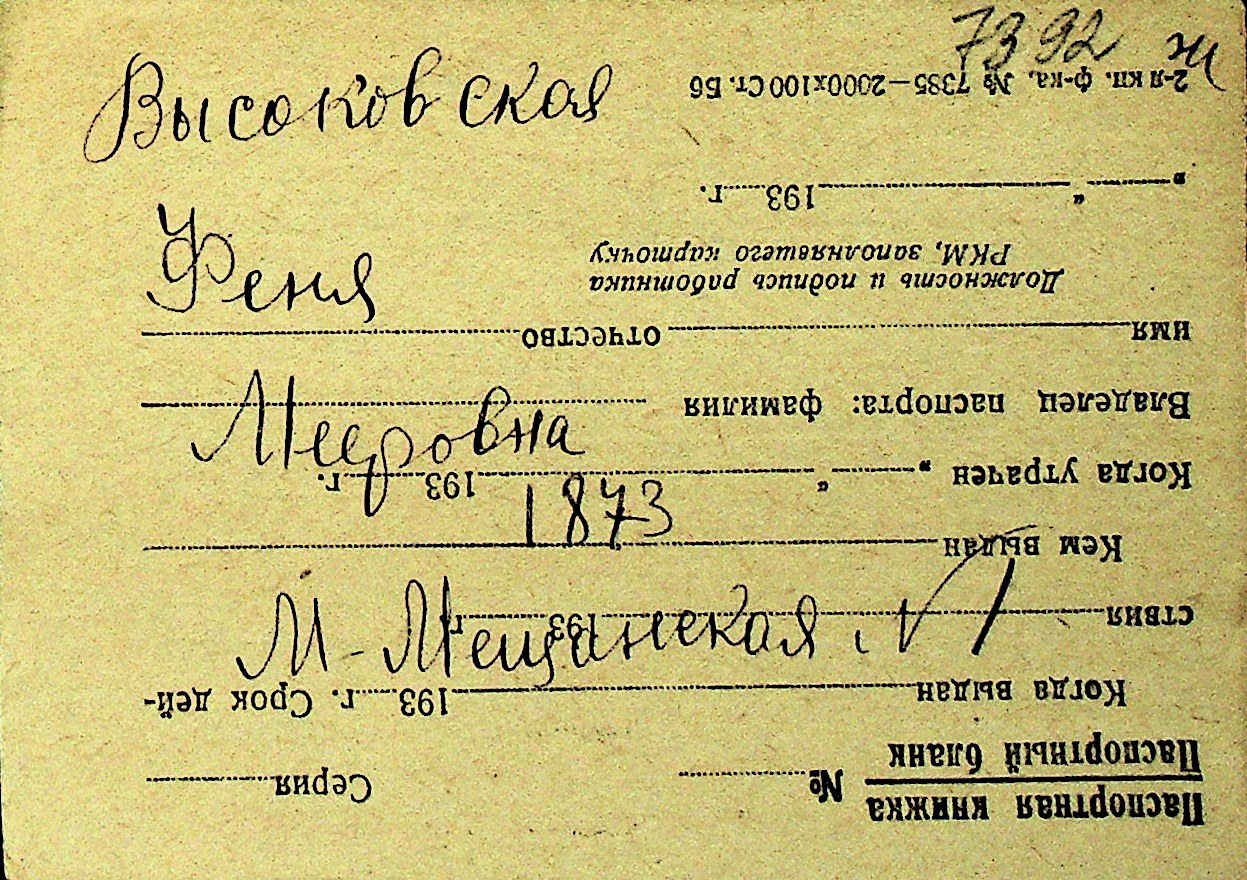 7392 ж
Высоковская
Феня
Мееровна
1873
М-Мещанская N 1
Паспортная книжка
Паспортный бланк
№ Серия
Когда выдан 193 г. Срок дей-
ствия 193 г.
Кем выдан
Когда утрачен „ “ 193 г.
Владелец паспорта: фамилия
имя отчество
Должность и подпись работника
РКМ, заполнявшего карточку
„ “ 193 г.
2-я кп. ф-ка, № 7385—2000х100 Ст. Б6